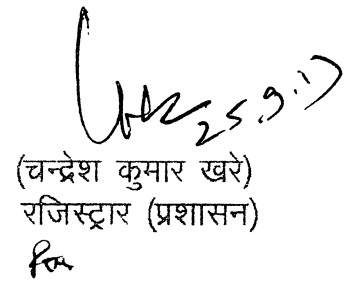 25.9.17
(चन्द्रेश कुमार खरे)
रजिस्ट्रार (प्रशासन)